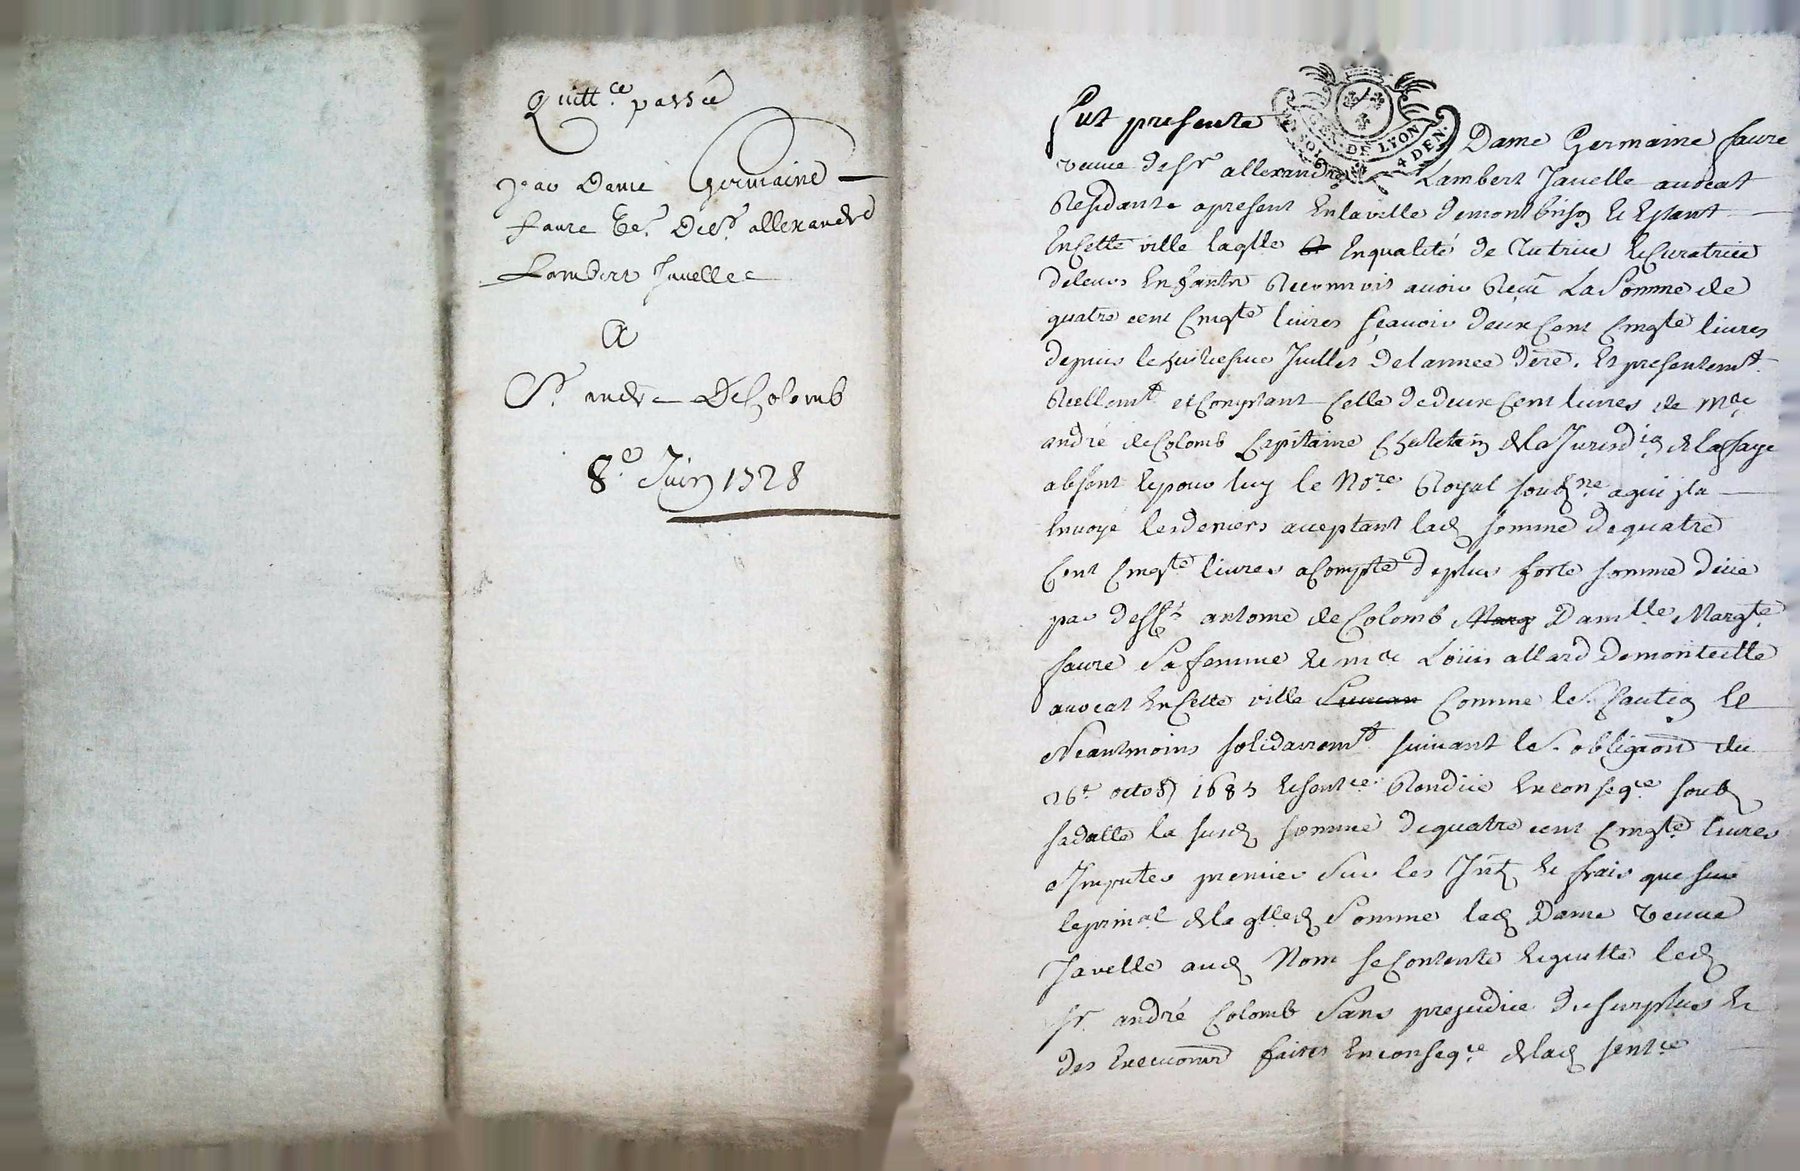 Quitt.ce passée
par Dame Germaine
faure ve. De sr. allexandre
Lambert Javelle
A
Sr. andré De Colomb
8.e Juin 1728
GEN. DE LYON
4 DEN.
fut presente Dame Germaine faure
veuve de sr allexandre Lambert Javelle avocat
Residante apresent en la ville de montbrison et estant
en cette ville laqlle en qualité de Tutrice et Curatrice
de leurs enfants Reconnoit avoir Reçu La Somme de
quatre cent cinqte livres sçavoir deux cent cinqte livres
depuis le huitiesme Juillet de l'annee dere. et presentemt.
Reellemt. et comptant celle de deux cent livres de Me
andré de Colomb Capitaine Chatelain de la Jurisdion de la faye
absent et pour luy le Nore Royal soubne a qui jl a
envoyé les deniers acceptant lad somme de quatre
cent cinqte livres a compte de plus forte somme düe
par deft antoine de Colomb Marg Damlle. Margte
faure Sa femme et me Loüis allard de monteille
avocat en Cette ville comme le. caution et
Neantmoins solidairemt suivant les. obligaon du
26e octob 1685 et sentce Rendüe en conseqce soub
sadatte la susd somme de quatre cent cinqte livres
Imputer premier sur les Int et frais que sur
le prinal de laqlled Somme lad Dame veuve
Javelle aud Nom se contente et quitte led
sr. andré Colomb Sans prejudice du surplus et
des execuons faites en conseqce de lad sentce